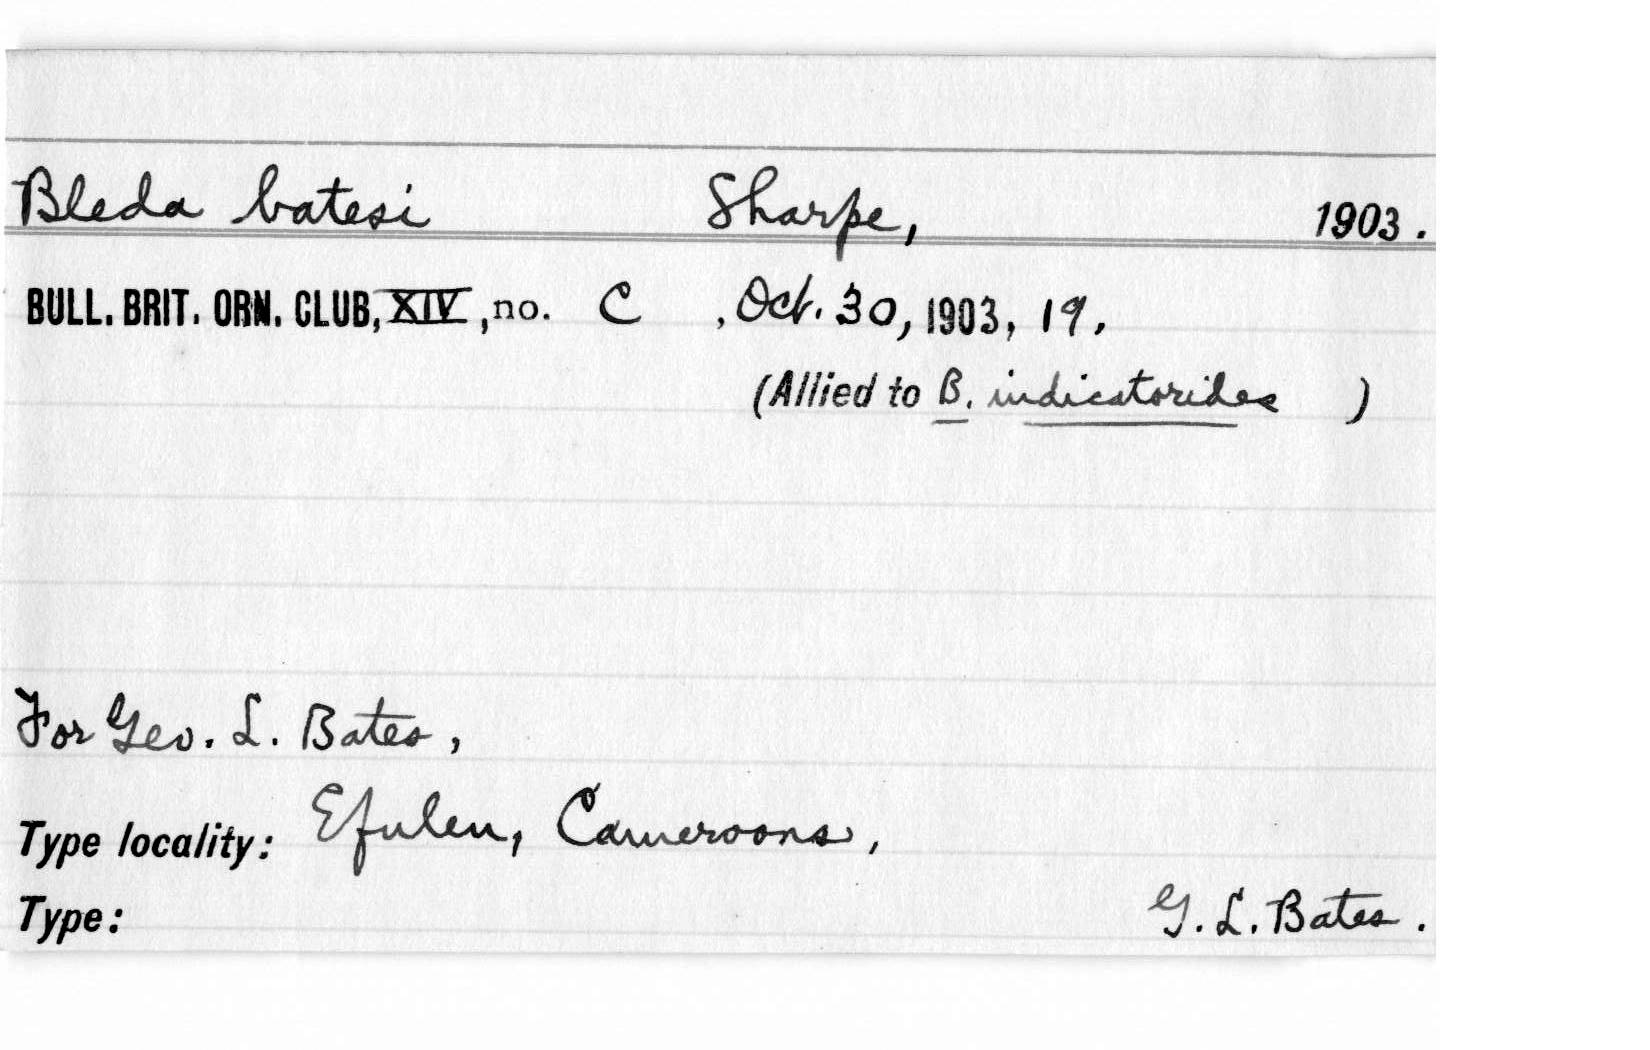 Bleda batesi Sharpe, 1903.
BULL. BRIT. ORN. CLUB, XIV, no. C , Oct. 30, 1903, 19.
(Allied to B. indicatorides )
For Geo. L. Bates,
Type locality: Efulen, Cameroons,
Type: G. L. Bates.